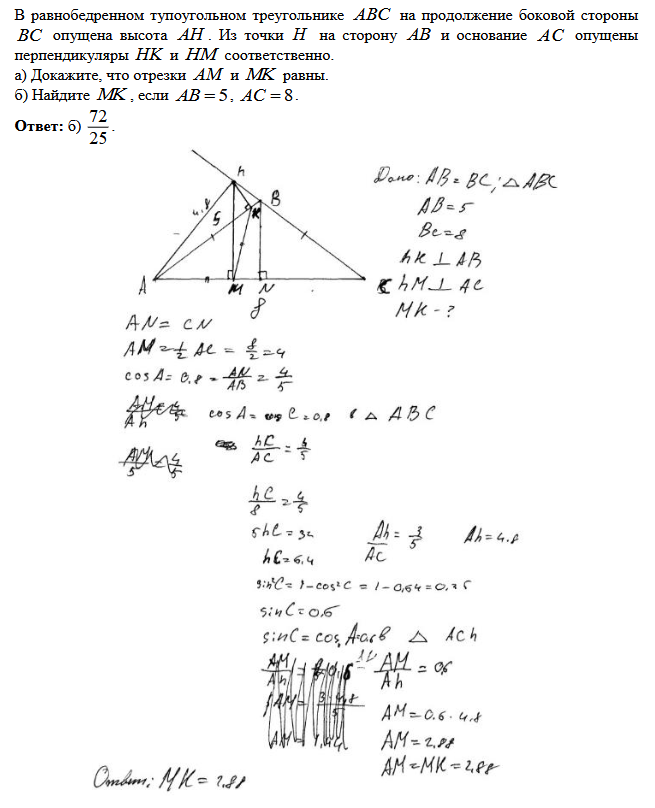 В равнобедренном тупоугольном треугольнике ABC на продолжение боковой стороны
BC опущена высота AH. Из точки H на сторону AB и основание AC опущены
перпендикуляры HK и HM соответственно.
а) Докажите, что отрезки AM и MK равны.
б) Найдите MK, если AB = 5, AC = 8.
Ответ: б) 72/25.
h
B
K
5
4.8
A
M
N
C
8
Дано: AB = BC; △ ABC
AB = 5
Bc = 8
hK ⊥ AB
hM ⊥ AC
MK - ?
AN = CN
AM = 1/2 AC = 8/2 = 4
cos A = 0.8 = AN/AB = 4/5
cos A = cos C = 0,8 в △ ABC
hC/AC = 4/5
hC/8 = 4/5
5hC = 32
hC = 6.4
Ah/AC = 3/5
Ah = 4.8
sin²C = 1 - cos²C = 1 - 0,64 = 0,36
sin C = 0.6
sin C = cos A в △ ACh
AM/Ah = 0,6
AM = 0.6 · 4.8
AM = 2.88
AM = MK = 2,88
Ответ: MK = 2.88